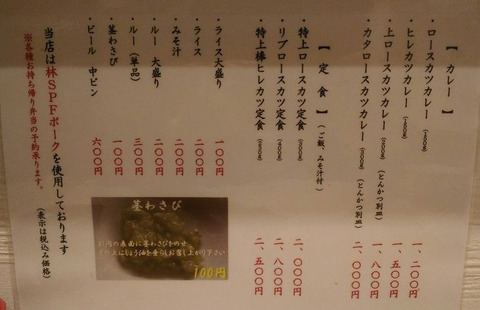 【カレー】
・ロースカツカレー
・ヒレカツカレー 一、二〇〇円
・上ロースカツカレー (とんかつ別皿) 一、五〇〇円
・カタロースカツカレー (とんかつ別皿) 一、八〇〇円
二、〇〇〇円
【定食】(ご飯、みそ汁付)
・特上ロースカツ定食 二、〇〇〇円
・リブロースカツ定食 二、八〇〇円
・特上棒ヒレカツ定食 二、五〇〇円
・ライス大盛り 一〇〇円
・ライス 二〇〇円
・みそ汁 二〇〇円
・ルー 大盛り 二〇〇円
・ルー(単品) 三〇〇円
・茎わさび 一〇〇円
・ビール 中ビン 六〇〇円
茎わさび
お肉の表面に茎わさびをのせ
その上にしょう油を垂らしお召し上がり下さい
100円
当店は林SPFポークを使用しております
(表示は税込み価格)
※各種お持ち帰り弁当の予約承ります。